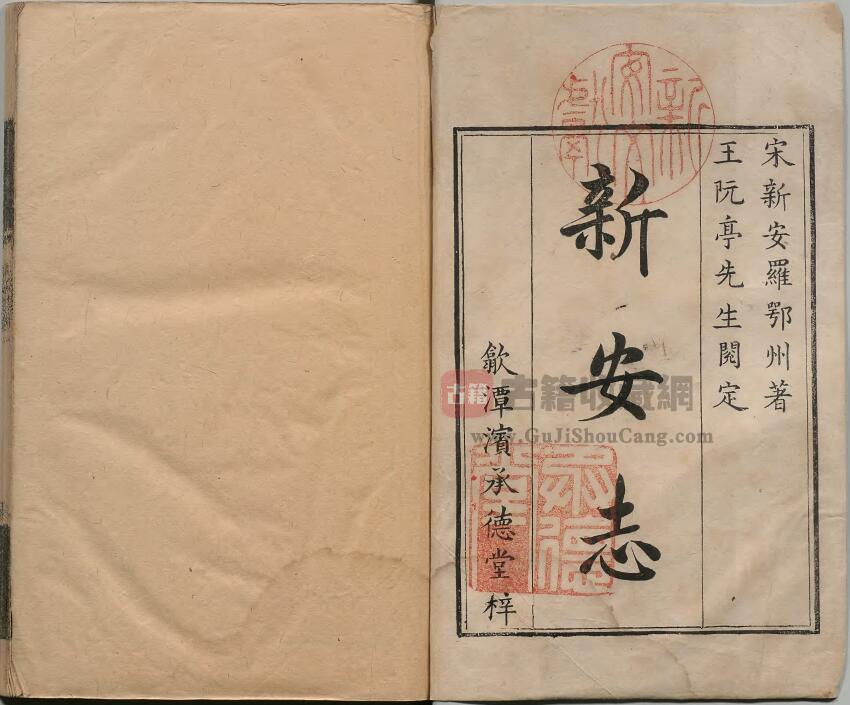 宋新安羅鄂州著
王阮亭先生閱定
新安志
歙潭濱承德堂梓
新安文獻
古籍
古籍收藏網
www.GuJiShouCang.com